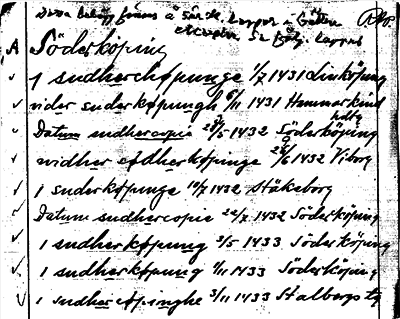 Dessa belägg finns å särsk. lappar i
excerpter se följ. lappar
A Söderköping
i sudherchøpunge 1/7 1431 Linköping
vider suderkøpungh 6/11 1431 Hammarkind
hdtg
Datum sudhercopie 29/5 1432 Söderköping
widher sødherkøpinge 28/6 1432 Viborg
i suderkøpunge 10/7 1432 Stäkeborg
Datum sudhercopie 22/7 1432 Söderköping
i sudherkøpung 3/5 1433 Söderköping
i sudherkøpung 1/11 1433 Söderköping
i sudhercøpinghe 3/11 1433 Stalborgs